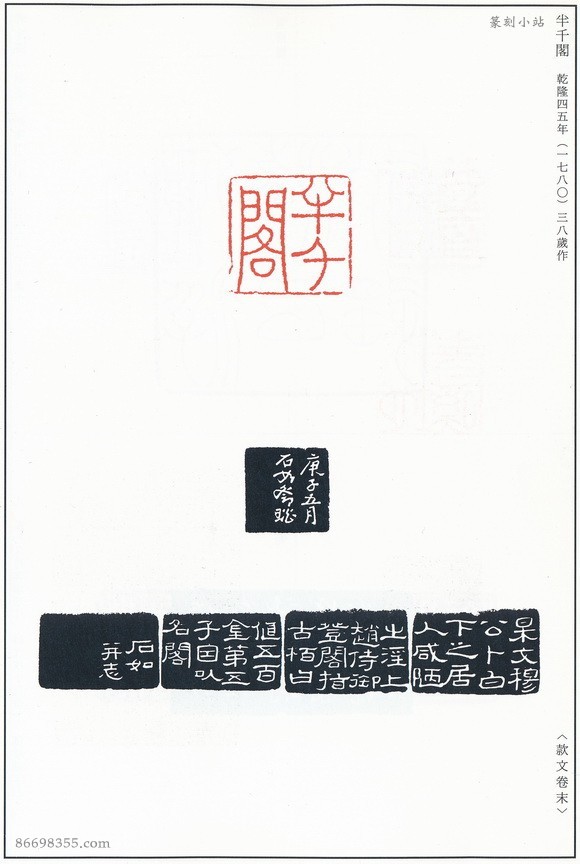 半千閣 乾隆四五年（一七八〇）三八歲作
篆刻小站
半千
閣
庚子五月
石如鄧琰
文穆
公卜白
下之居
人咸陋
之 上
趙侍御
登閣指
古栢曰
值五百
金第五
子因以
名閣
石如
并志
〈款文卷末〉
86698355.com